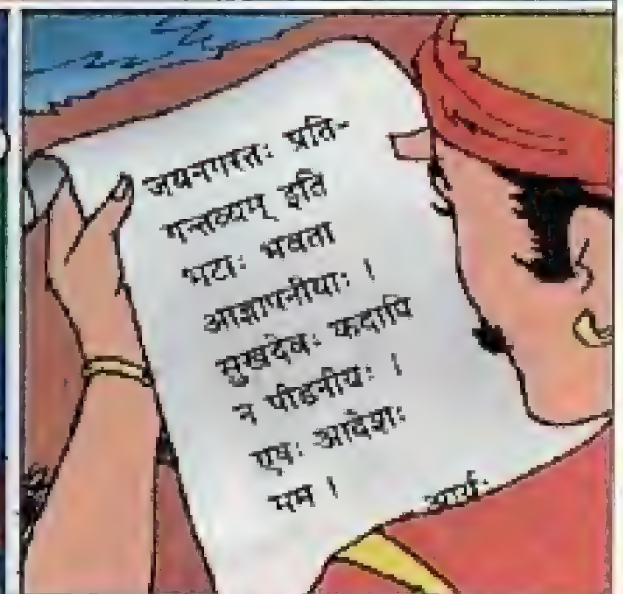 जयनगरतः प्रति-
गन्तव्यम् इति
भटाः भवता
आज्ञापनीयाः ।
सुखदेवः कदापि
न पीडनीयः ।
एषः आदेशः
मम ।
आर्यः